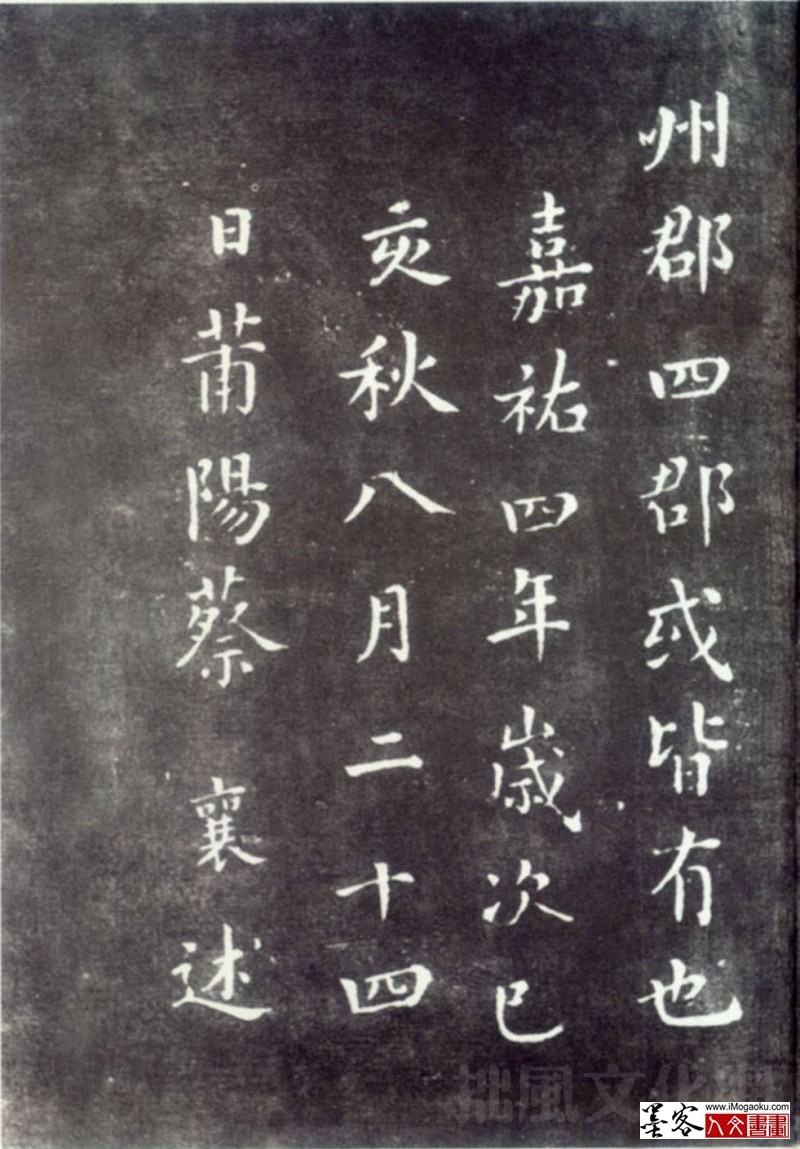 州郡四郡或皆有也
嘉祐四年歲次己
亥秋八月二十四
日莆陽蔡襄述
拙風文化
墨客
www.iMogaoku.com
人文書畫